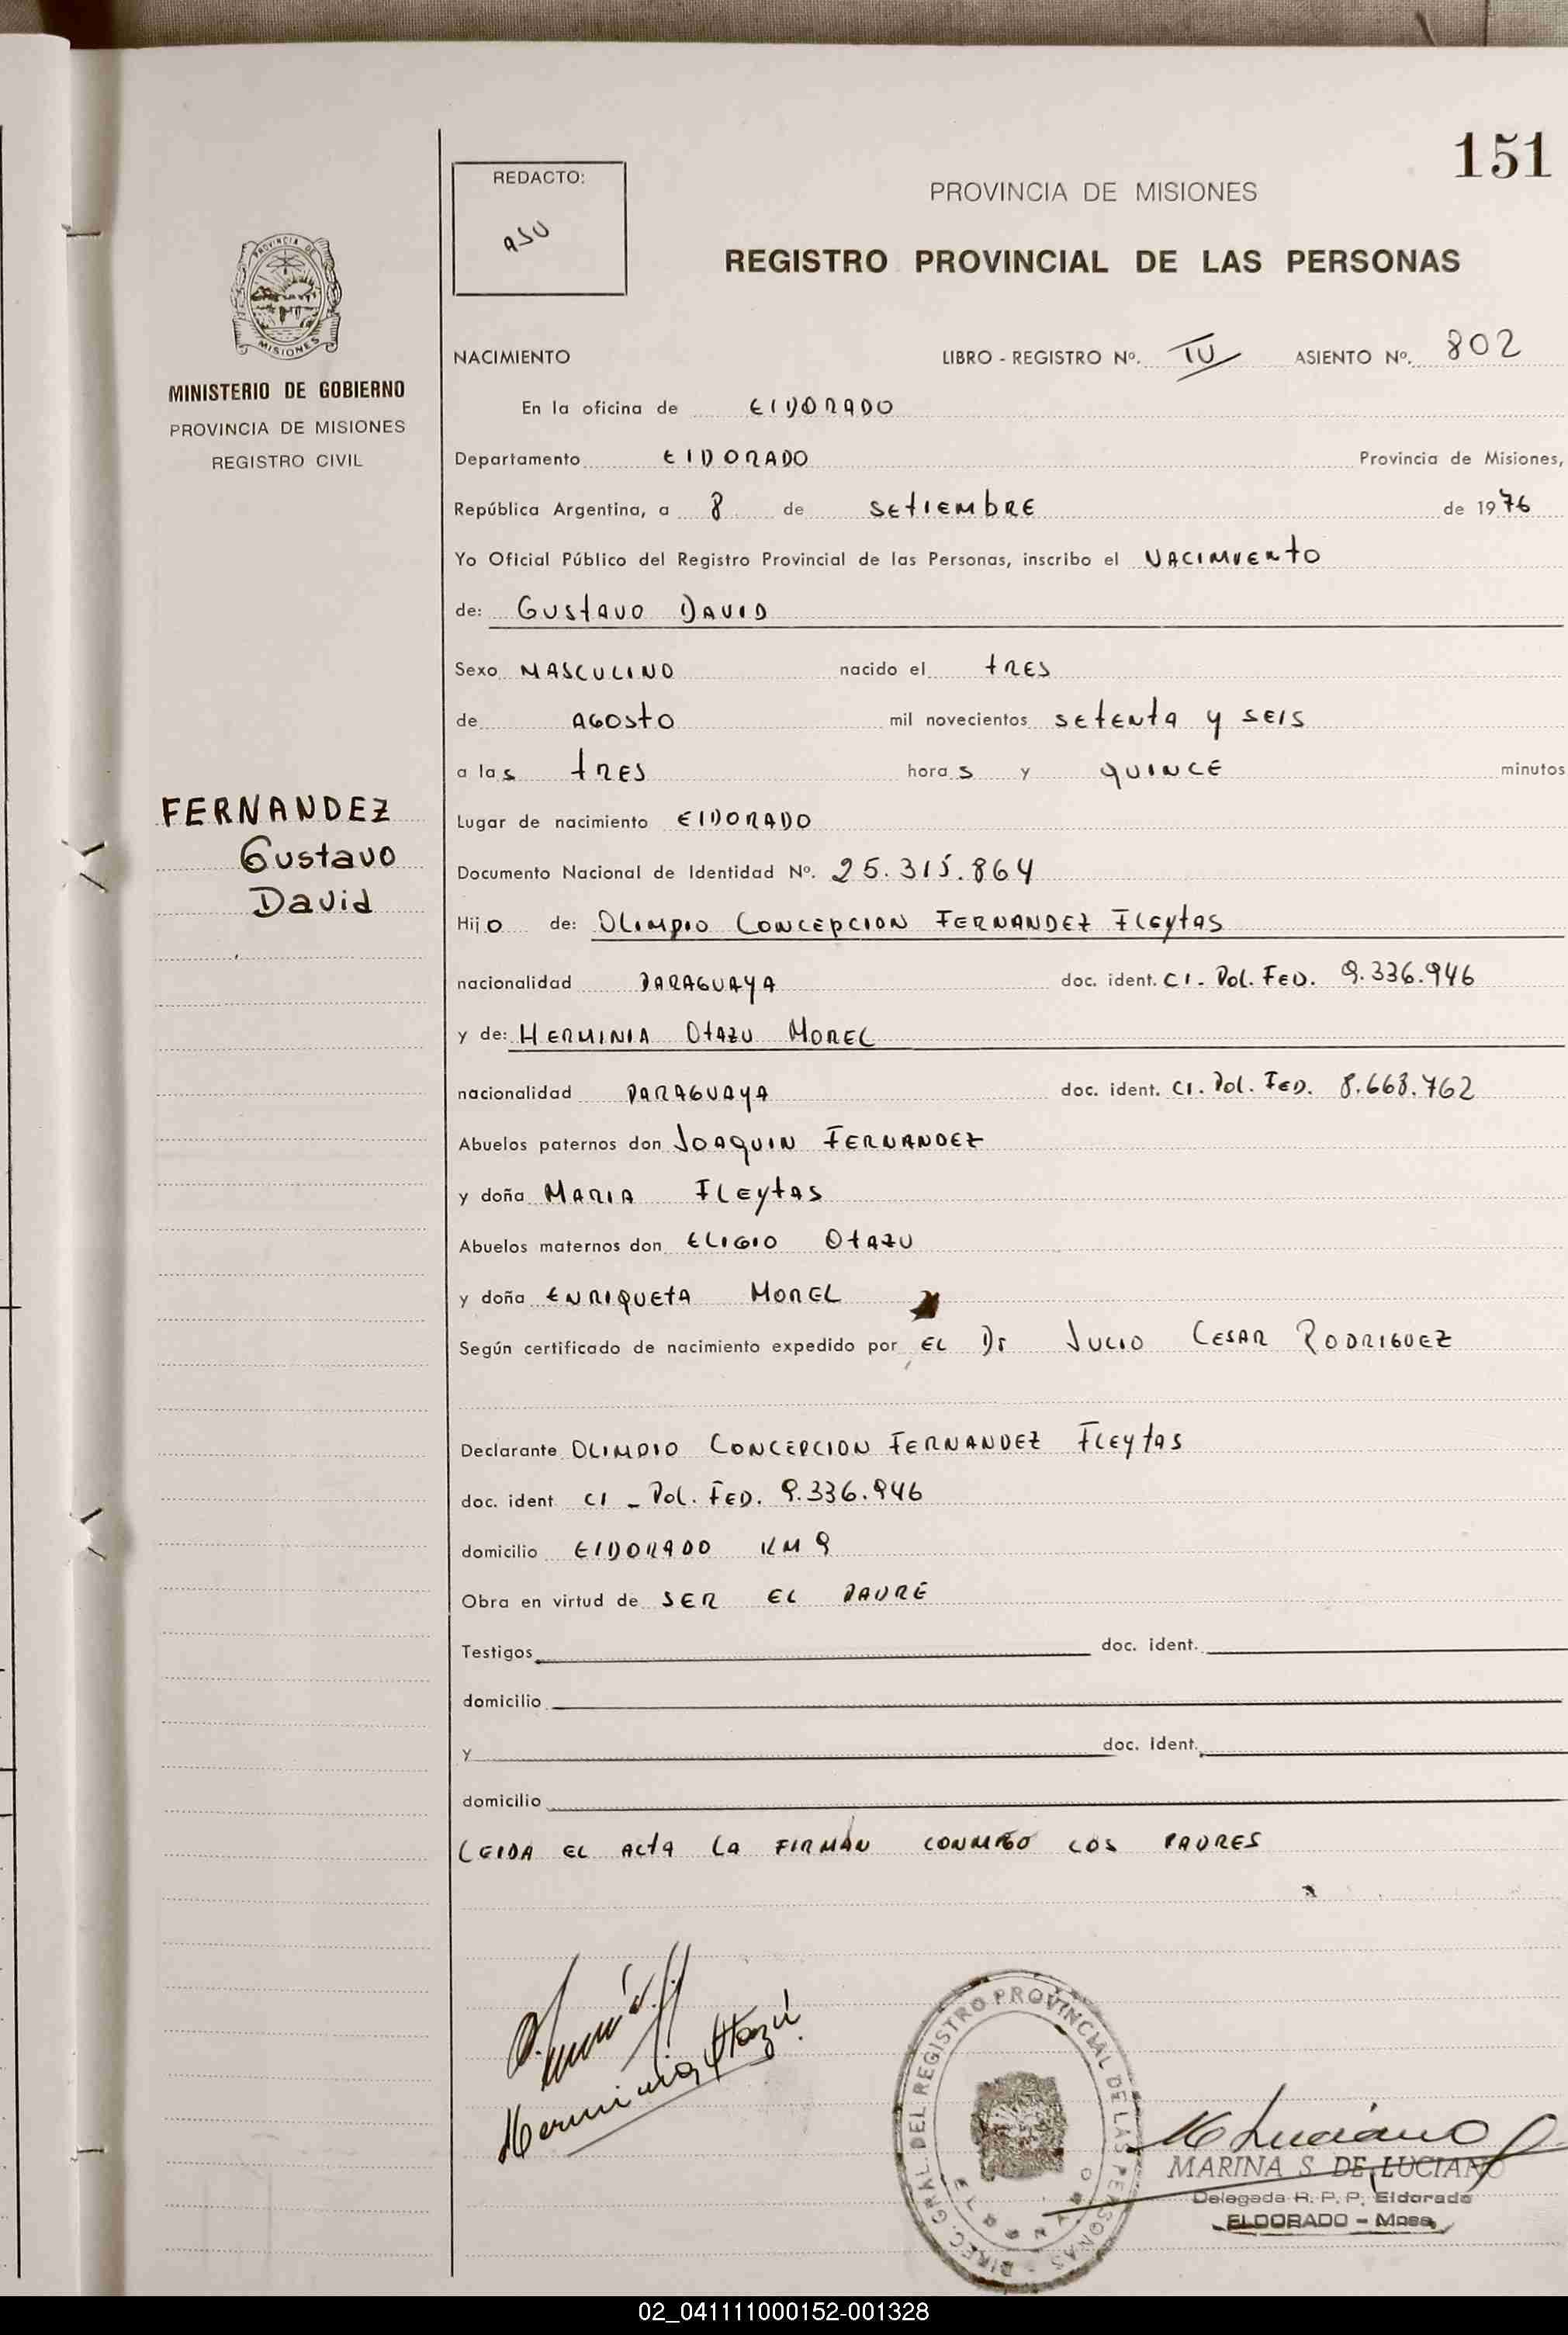 151
REDACTO:
ASU
PROVINCIA DE MISIONES
REGISTRO PROVINCIAL DE LAS PERSONAS
PROVINCIA DE
MISIONES
MINISTERIO DE GOBIERNO
PROVINCIA DE MISIONES
REGISTRO CIVIL
NACIMIENTO LIBRO - REGISTRO Nº. IV ASIENTO Nº. 802
En la oficina de ElDORADO
Departamento ElDORADO Provincia de Misiones,
República Argentina, a 8 de SEtIEMbRE de 1976
Yo Oficial Público del Registro Provincial de las Personas, inscribo el NACIMIENtO
de: GUStAVO DAVID
Sexo MASCULINO nacido el tRES
de AGOStO mil novecientos SEtENtA y SEIS
a las tRES horas y QUINCE minutos
FERNANDEZ
Gustavo
David
Lugar de nacimiento ElDORADO
Documento Nacional de Identidad Nº. 25.315.864
Hijo de: OLIMPIO CONCEPCION FERNANDEZ FLEytAS
nacionalidad PARAGUAYA doc. ident. CI - Pol. FED. 9.336.946
y de: HERMINIA OtAZU MOREL
nacionalidad PARAGUAYA doc. ident. CI. Pol. FED. 8.668.762
Abuelos paternos don JOAQUIN FERNANDEZ
y doña MARIA FLEytAS
Abuelos maternos don ELIGIO OtAZU
y doña ENRIQUEtA MOREL
Según certificado de nacimiento expedido por EL Dr JULIO CESAR RODRIGUEZ
Declarante OLIMPIO CONCEPCION FERNANDEZ FLEytAS
doc. ident CI - Pol. FED. 9.336.946
domicilio ElDORADO KM 9
Obra en virtud de SER EL PADRE
Testigos doc. ident.
domicilio
y doc. ident.
domicilio
LEIDA EL ACtA LA FIRMAN CONMIGO LOS PADRES
Herminia Otazú
DIREC. GRAL. DEL REGISTRO PROVINCIAL DE LAS PERSONAS
ELDORADO
M Luciano
MARINA S. DE LUCIANO
Delegada R. P. P. Eldorado
ELDORADO - Mnes.
02_041111000152-001328